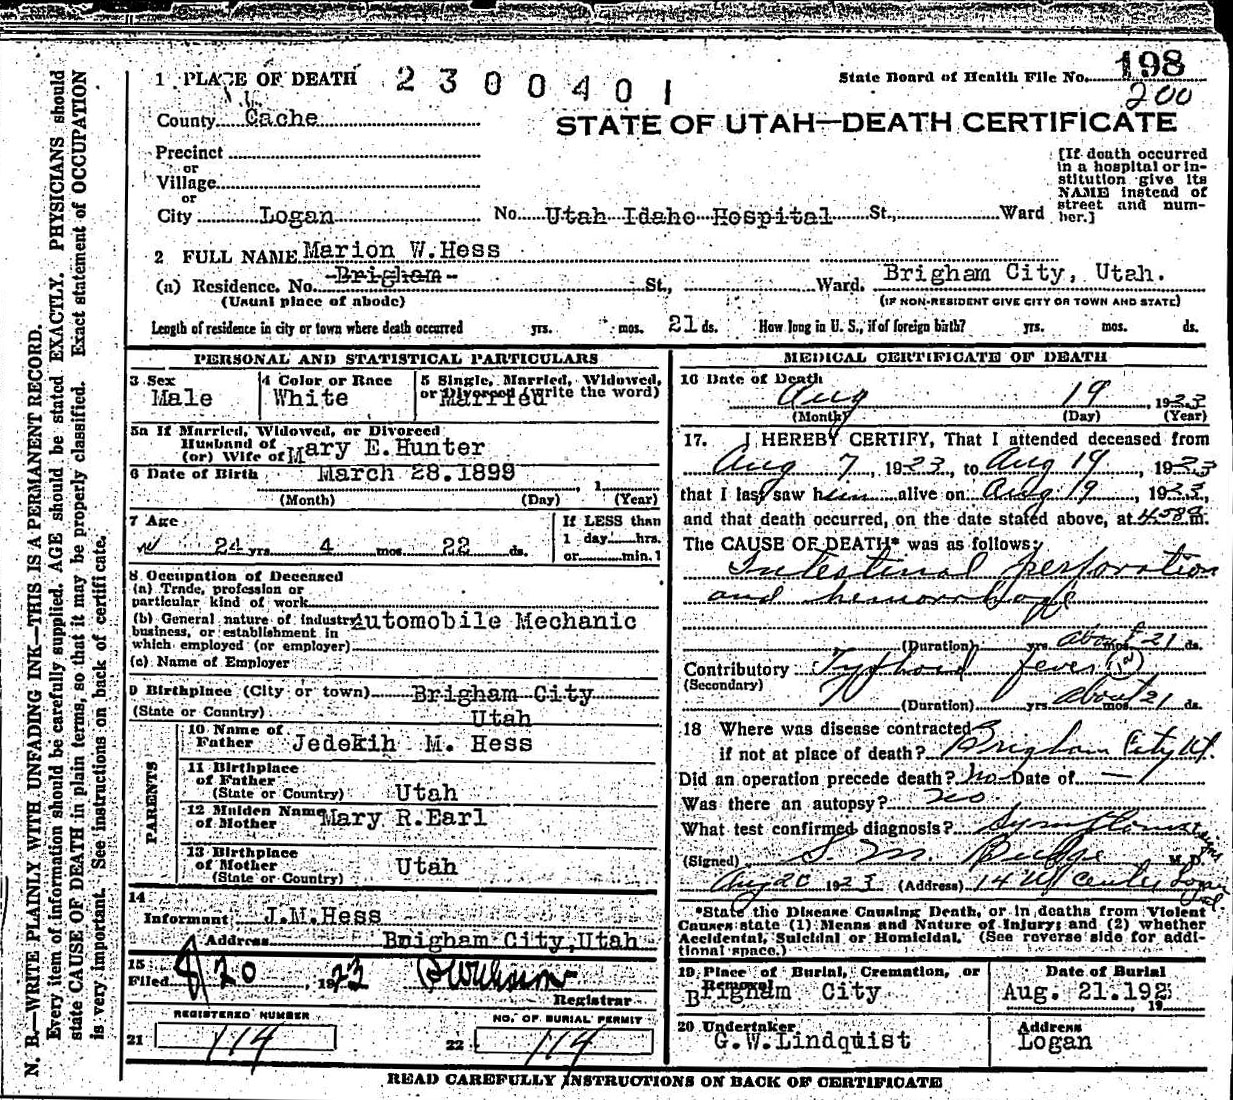 198
1 PLACE OF DEATH 2300401 State Board of Health File No.
200
County Cache
STATE OF UTAH—DEATH CERTIFICATE
Precinct
or
Village
or
City Logan No. Utah Idaho Hospital St., Ward
[If death occurred
in a hospital or in-
stitution give its
NAME instead of
street and num-
ber.]
2 FULL NAME Marion W.Hess
(a) Residence. No. Brigham St., Ward. Brigham City, Utah.
(Usual place of abode) (IF NON-RESIDENT GIVE CITY OR TOWN AND STATE)
Length of residence in city or town where death occurred yrs. mos. 21 ds. How long in U. S., if of foreign birth? yrs. mos. ds.
PERSONAL AND STATISTICAL PARTICULARS
3 Sex
Male
4 Color or Race
White
5 Single, Married, Widowed,
or Divorced (write the word)
Married
5a If Married, Widowed, or Divorced
Husband of
(or) Wife of Mary E.Hunter
6 Date of Birth March 28.1899
, 1
(Month) (Day) (Year)
7 Age
24 yrs. 4 mos. 22 ds.
If LESS than
1 day hrs.
or min.1
8 Occupation of Deceased
(a) Trade, profession or
particular kind of work
(b) General nature of industry
business, or establishment in
which employed (or employer)
Automobile Mechanic
(c) Name of Employer
9 Birthplace (City or town) Brigham City
(State or Country) Utah
PARENTS
10 Name of
Father Jedekih M. Hess
11 Birthplace
of Father
(State or Country) Utah
12 Maiden Name
of Mother Mary R.Earl
13 Birthplace
of Mother
(State or Country) Utah
14
Informant J.M.Hess
Address Brigham City,Utah
15
Filed 8/20, 1923
Registrar
REGISTERED NUMBER
21 114
NO. OF BURIAL PERMIT
22 114
MEDICAL CERTIFICATE OF DEATH
16 Date of Death
Aug 19, 1923
(Month) (Day) (Year)
17. I HEREBY CERTIFY, That I attended deceased from
Aug 7, 1923, to Aug 19, 1923
that I last saw him alive on Aug 19, 1923,
and that death occurred, on the date stated above, at m.
The CAUSE OF DEATH* was as follows:
Intestinal perforation
and hemorrhage
(Duration) yrs. mos. about 21 ds.
Contributory Typhoid fever
(Secondary)
(Duration) yrs. mos. about 21 ds.
18 Where was disease contracted
if not at place of death? Brigham City Ut.
Did an operation precede death? no Date of —
Was there an autopsy? no
What test confirmed diagnosis? Symptoms & signs
(Signed) S. M. Budge M. D.
Aug 20 1923 (Address) 14 W Center Logan
*State the Disease Causing Death, or in deaths from Violent
Causes state (1) Means and Nature of Injury; and (2) whether
Accidental, Suicidal or Homicidal. (See reverse side for addi-
tional space.)
19 Place of Burial, Cremation, or
Removal
Brigham City
Date of Burial
Aug. 21.192
, 19
20 Undertaker
G.W.Lindquist
Address
Logan
READ CAREFULLY INSTRUCTIONS ON BACK OF CERTIFICATE
N. B.—WRITE PLAINLY WITH UNFADING INK—THIS IS A PERMANENT RECORD.
Every item of information should be carefully supplied. AGE should be stated EXACTLY. PHYSICIANS should
state CAUSE OF DEATH in plain terms, so that it may be properly classified. Exact statement of OCCUPATION
is very important. See instructions on back of certificate.